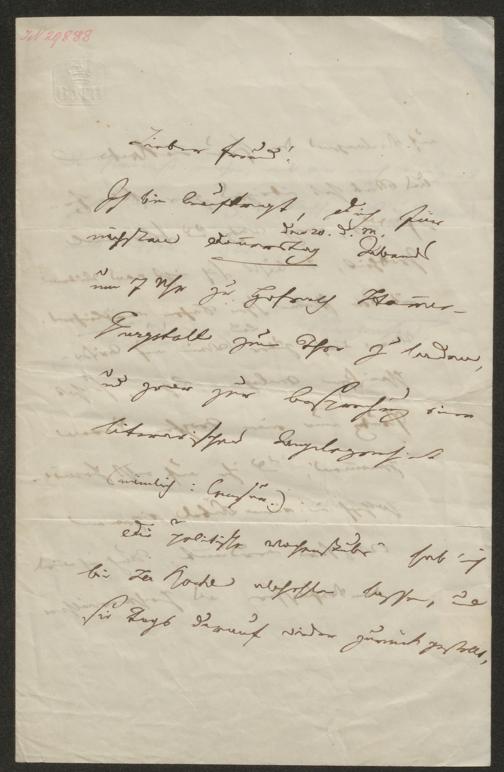 IN 29888
Lieber Freund!
Ich bin beauftragt, dich für
den 20. d. M.
nächsten Donnerstag Abends
um 7 Uhr zu Hofrath Hammer-
Purgstall zum Thee zu laden,
und zwar zur Besprechung einer
literarischen Angelegenheit
(nämlich: Censur.)
Die Politische
bei der lassen, und
sie Tags darauf wieder zurück gestellt,